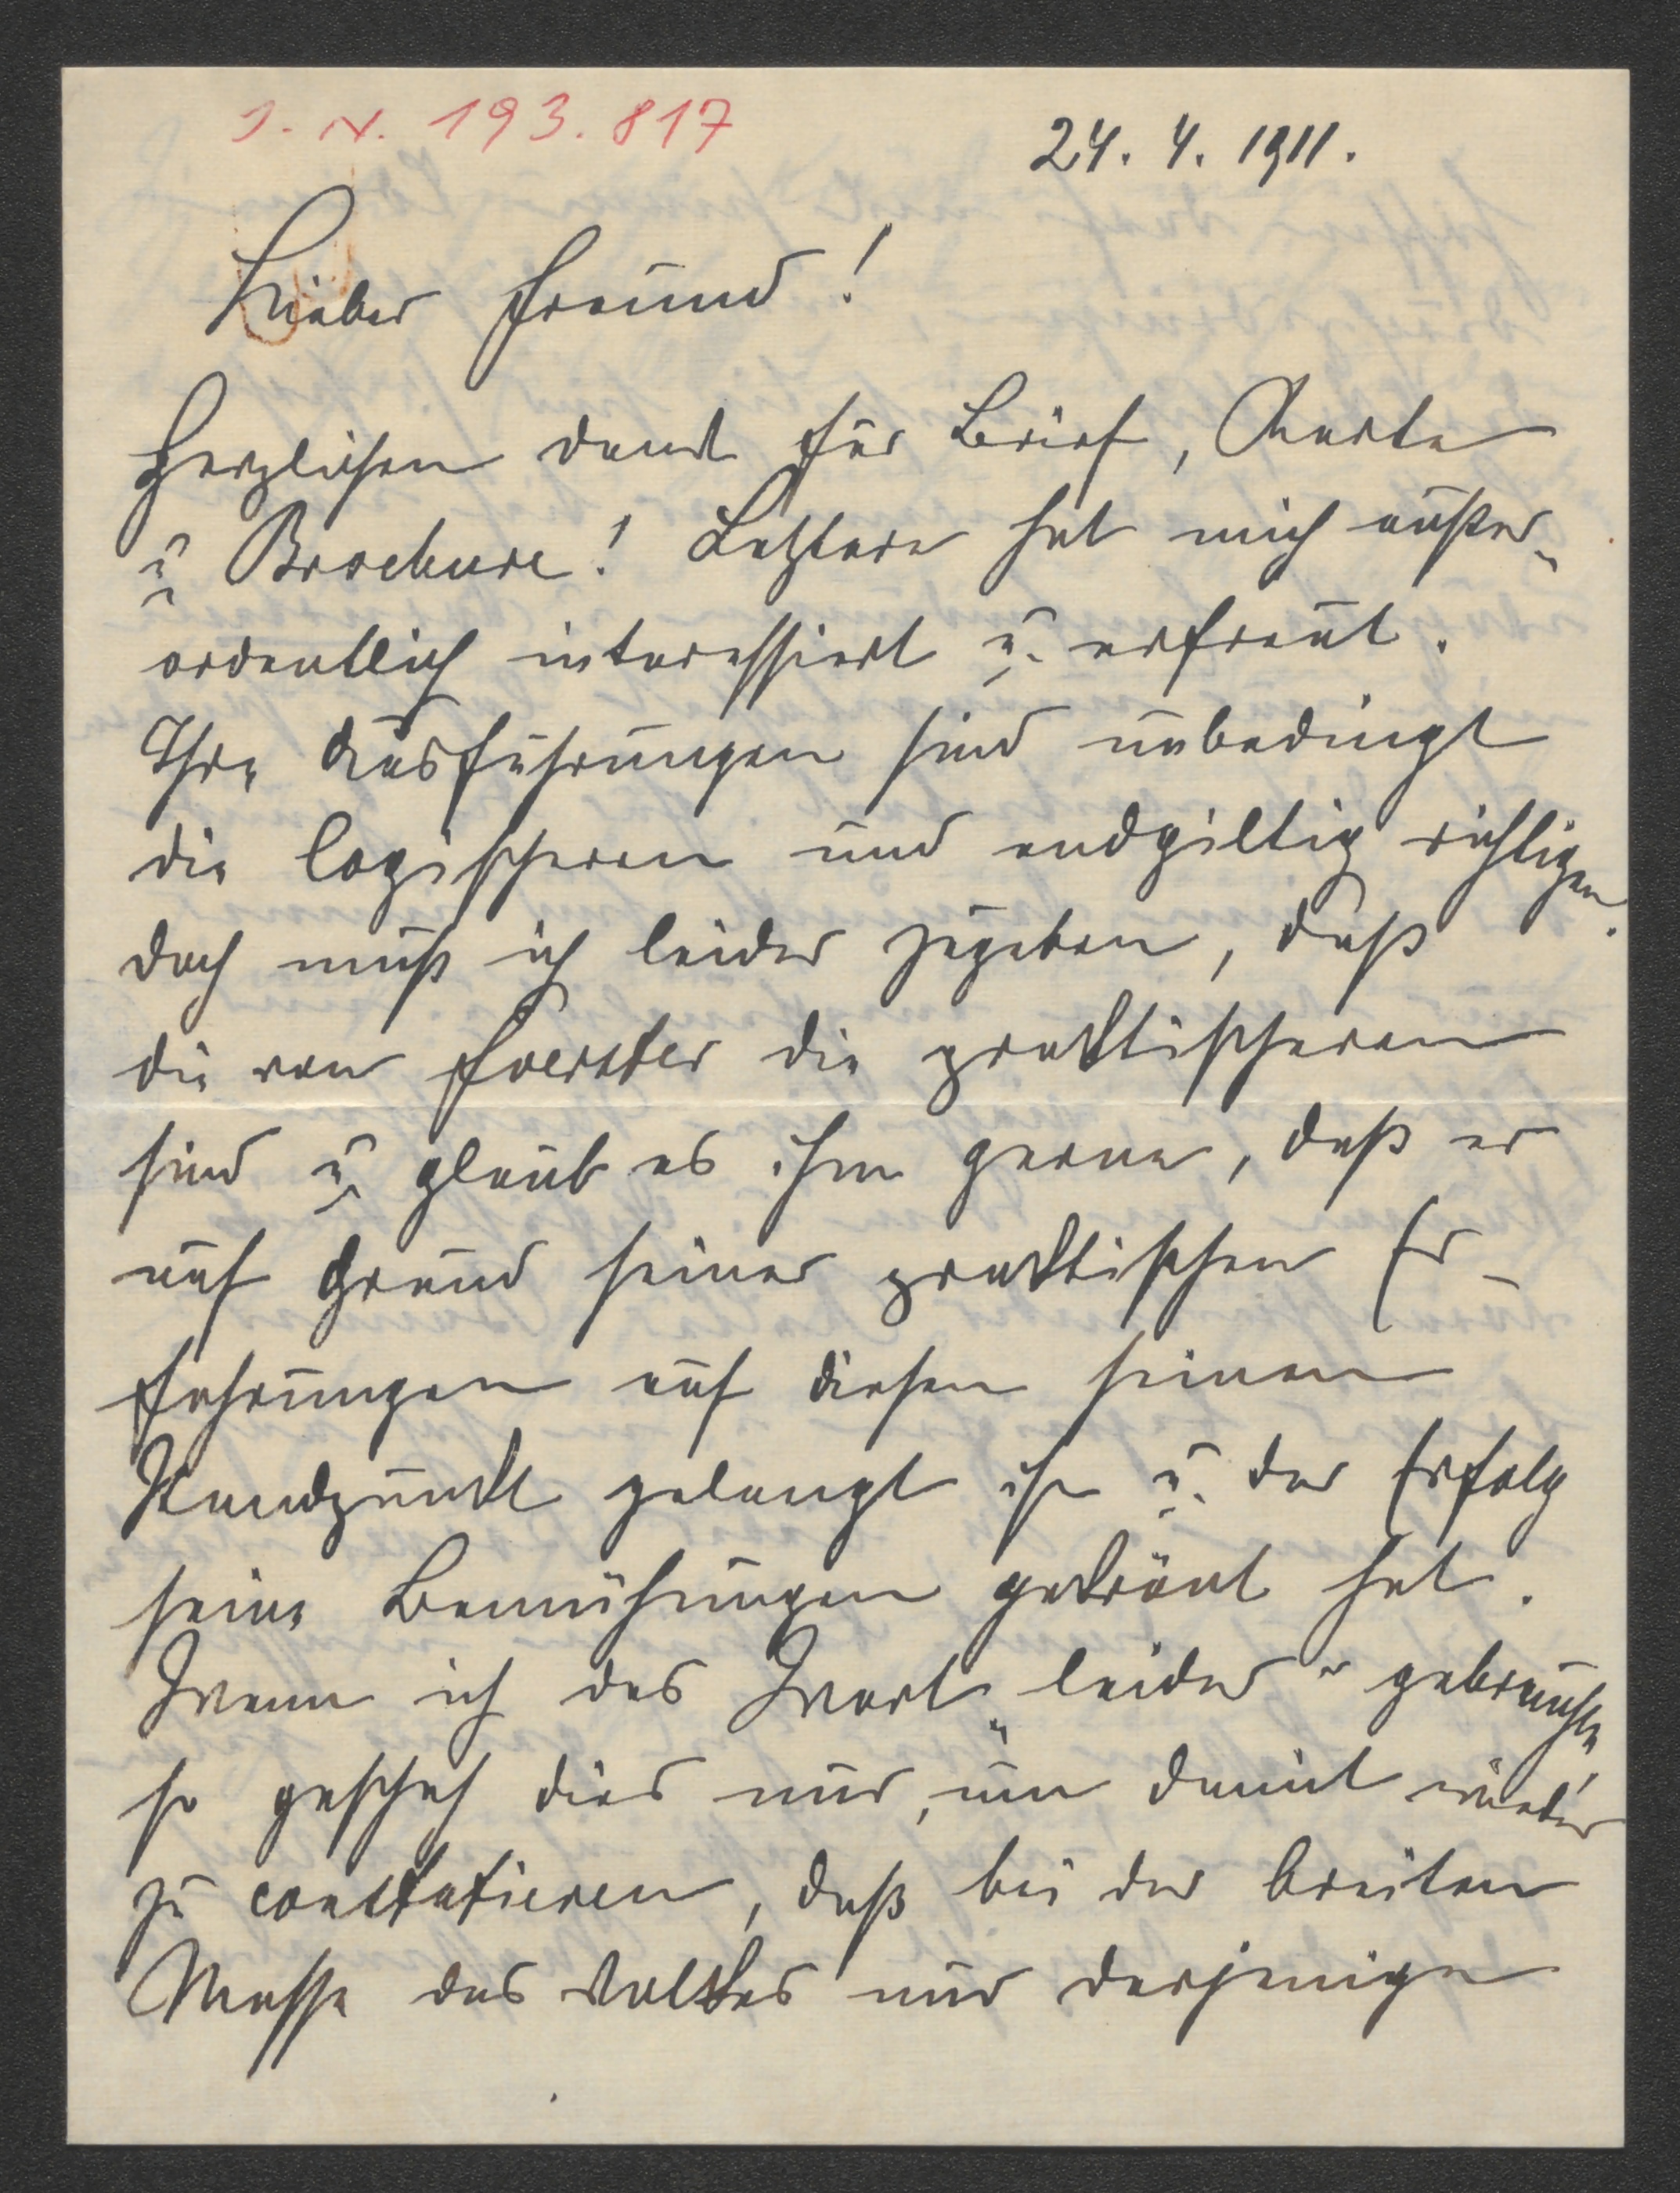 I. N. 193.817
24. 4. 1911.
Lieber Freund!
Herzlichen Dank für Brief, Karte
u Brochure! Letztere hat mich außer-
ordentlich interessiert u. erfreut.
Ihre Ausführungen sind unbedingt
die logischeren und endgiltig richtigen.
doch muß ich leider zugeben, daß
die von Foerster die praktischeren
sind u. glaub es ihm gerne, daß er
auf Grund seiner praktischen Er-
fahrungen auf diesen seinen
Standpunkt gelangt ist u. der Erfolg
seine Bemühungen gekrönt hat.
Wenn ich das Wort „leider“ gebrauchte,
so geschah dies nur, um damit wieder
zu constatieren, daß bei der breiten
Masse des Volkes nur derjenige